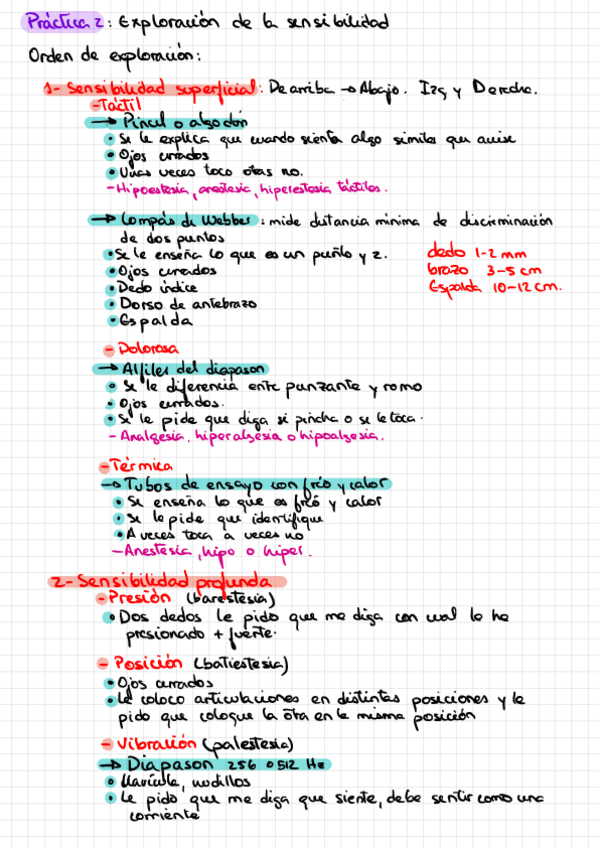 Práctica 2: Exploración de la sensibilidad
Orden de exploración:
1- Sensibilidad superficial: De arriba → Abajo. Izq y Derecha.
- Táctil
→ Pincel o algodón
• Se le explica que cuando sienta algo similar que avise
• Ojos cerrados
• Unas veces toco otras no.
- Hipoestesia, anestesia, hiperestesia táctiles.
→ Compás de Webber: mide distancia minima de discriminación
de dos puntos
• Se le enseña lo que es un punto y 2.
dedo 1-2 mm
• Ojos cerrados
brazo 3-5 cm
• Dedo índice
Espalda 10-12 cm.
• Dorso de antebrazo
• Espalda
- Dolorosa
→ Alfiler del diapason
• Se le diferencia entre punzante y romo
• Ojos cerrados.
• Se le pide que diga si pincha o se le toca.
- Analgesia, hiperalgesia o hipoalgesia.
- Térmica
→ Tubos de ensayo con frío y calor
• Se enseña lo que es frío y calor
• Se le pide que identifique
• A veces toca a veces no
- Anestesia, hipo o hiper.
2- Sensibilidad profunda
- Presión (barestesia)
• Dos dedos le pido que me diga con cual le he
presionado + fuerte.
- Posición (batiestesia)
• Ojos cerrados
• Le coloco articulaciones en distintas posiciones y le
pido que coloque la otra en la misma posición
- Vibración (palestesia)
→ Diapason 256 o 512 Hz
• Clavícula, nudillos
• Le pido que me diga que siente, debe sentir como una
corriente